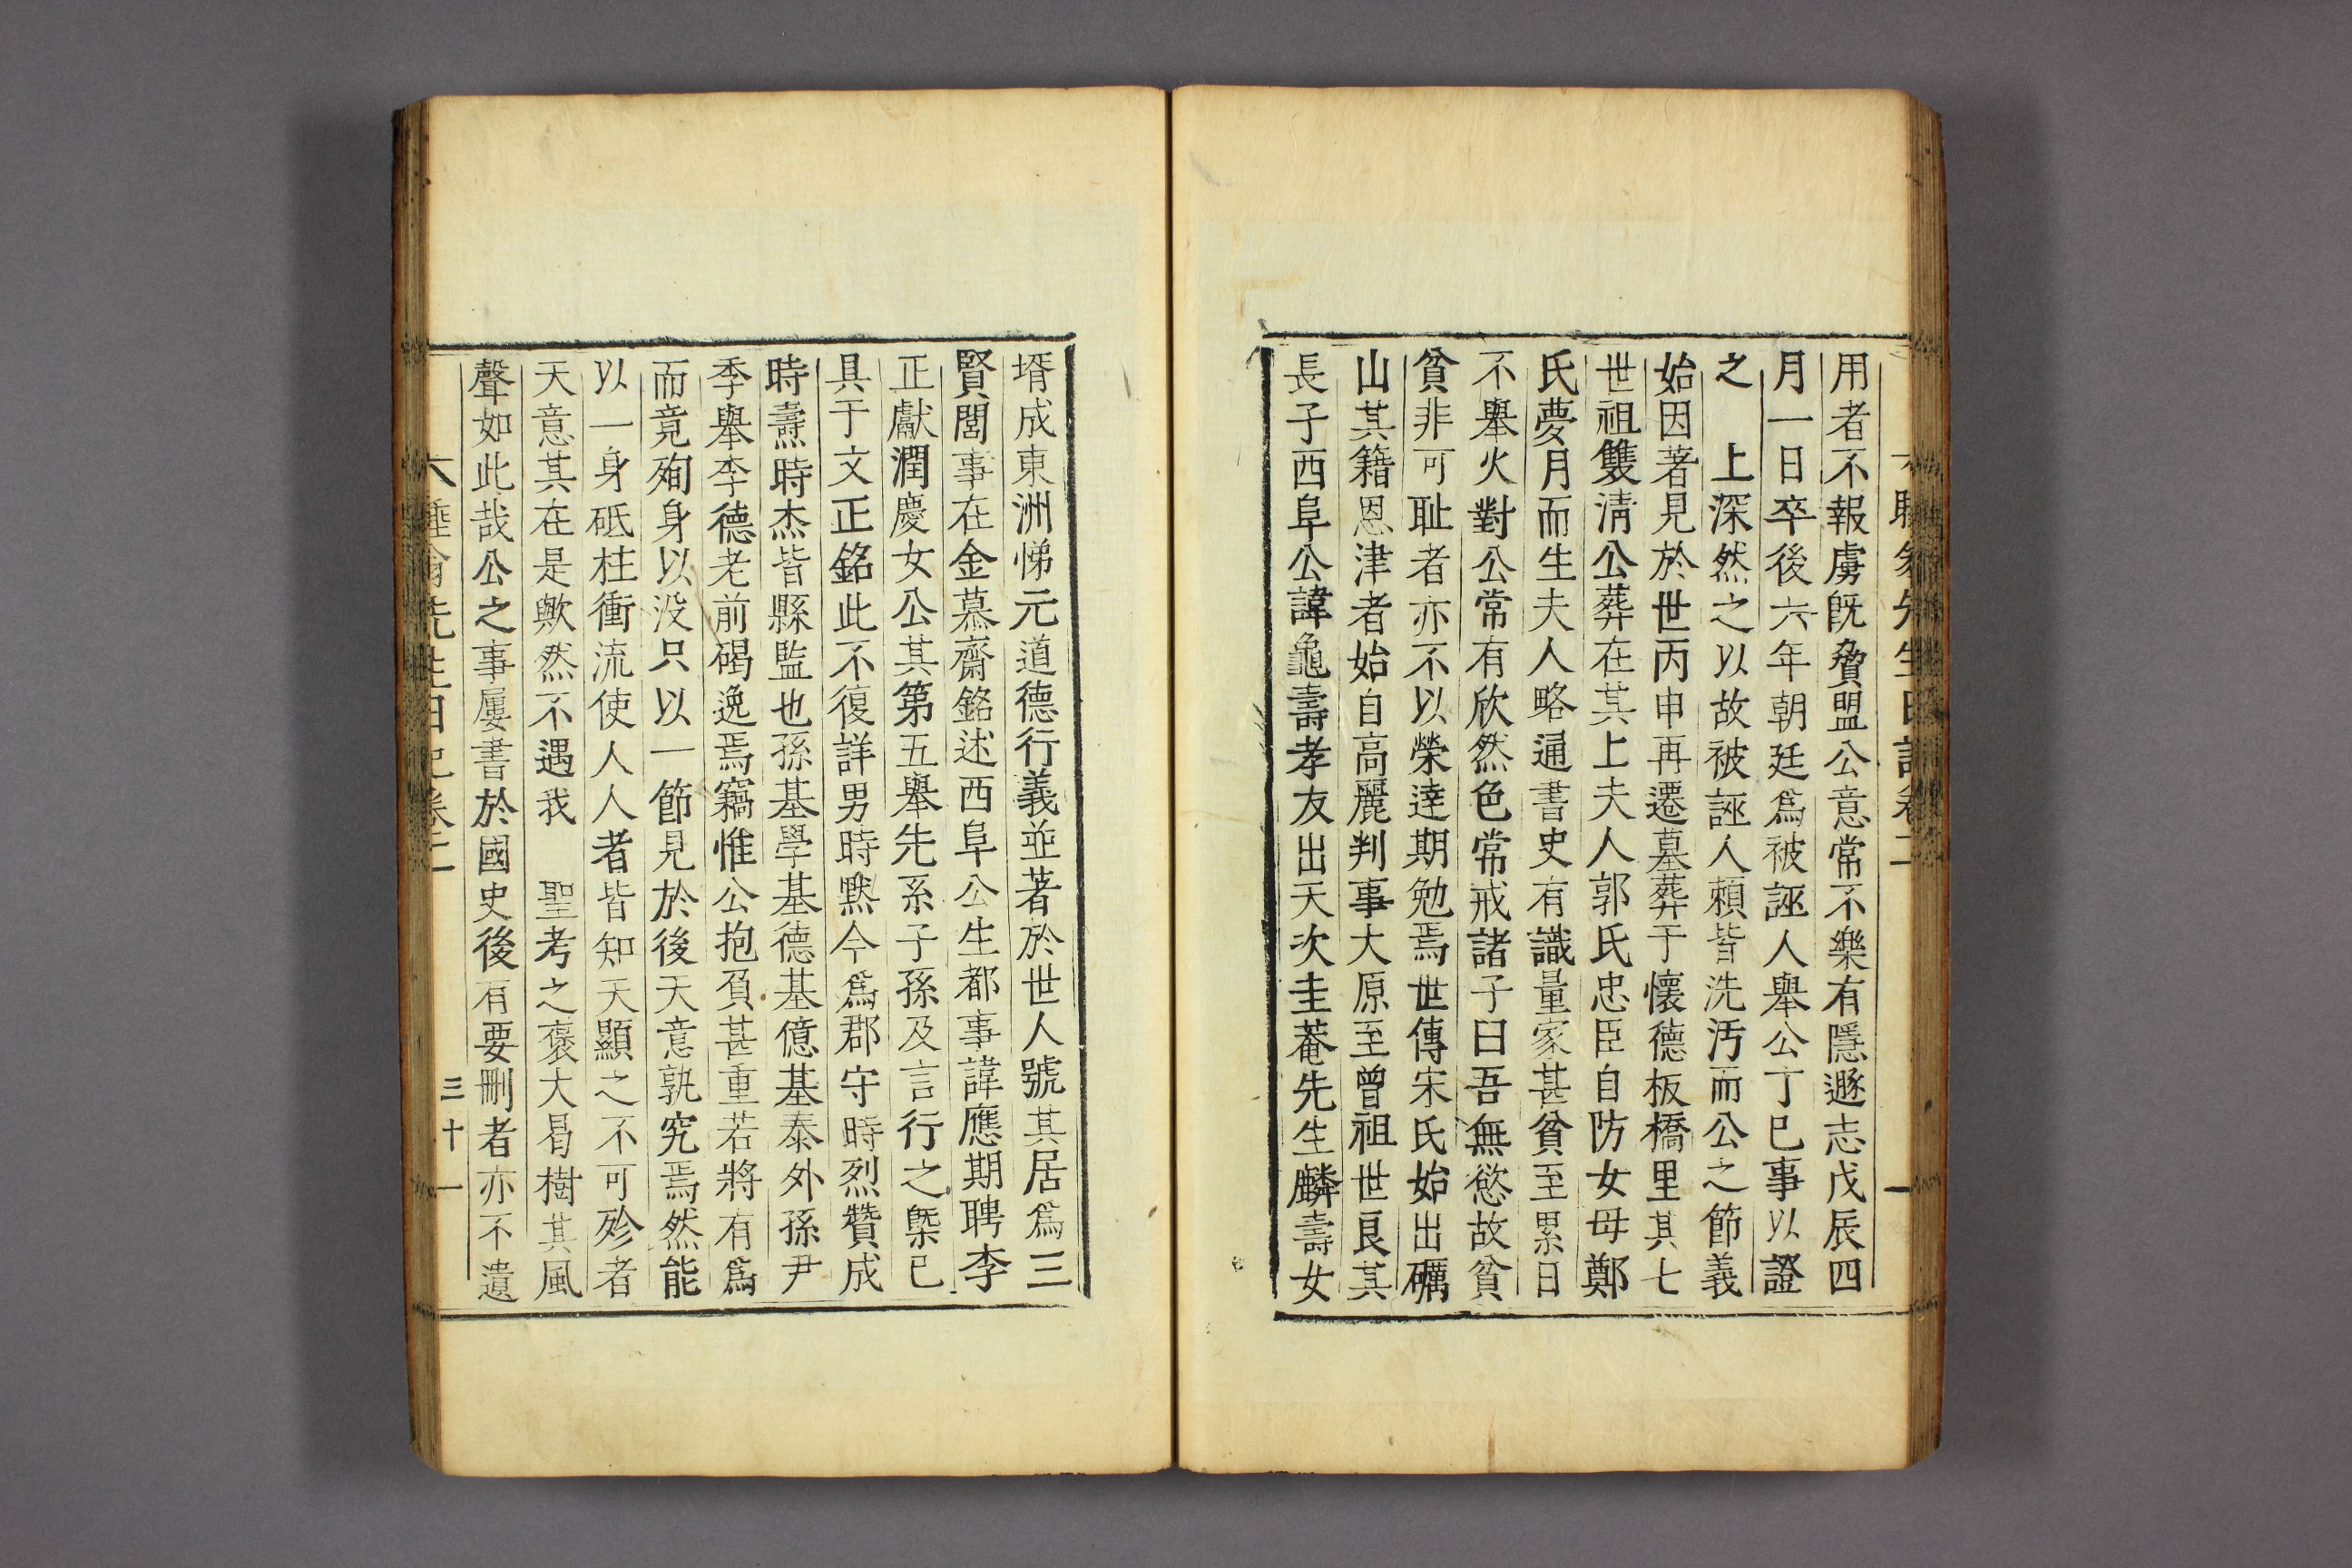 用者不報虜旣貟盟公意常不樂有隱遯志戊辰四
月一日卒後六年朝廷爲被誣人舉公丁巳事以證
之　上深然之以故被誣人賴皆洗汚而公之節義
始因著見於世丙申再遷墓葬于懷德板橋里其七
世祖雙淸公葬在其上夫人郭氏忠臣自防女母鄭
氏夢月而生夫人略通書史有識量家甚貧至累日
不舉火對公常有欣然色常戒諸子曰吾無慾故貧
貧非可耻者亦不以榮達期勉焉世傳宋氏始出礪
山其籍恩津者始自高麗判事大原至曾祖世良其
長子西阜公諱龜壽孝友出天次圭菴先生麟壽女
壻成東洲悌元道德行義並著於世人號其居爲三
賢閭事在金慕齋銘述西阜公生都事諱應期聘李
正獻潤慶女公其第五舉先系子孫及言行之槩已
具于文正銘此不復詳男時默今爲郡守時烈贊成
時燾時杰皆縣監也孫基學基德基億基泰外孫尹
季舉李德老前碣逸焉竊惟公抱負甚重若將有爲
而竟殉身以没只以一節見於後天意孰究焉然能
以一身砥柱衝流使人人者皆知天顯之不可殄者
天意其在是歟然不遇我　聖考之褒大曷樹其風
聲如此哉公之事屢書於國史後有要刪者亦不遺
三十一